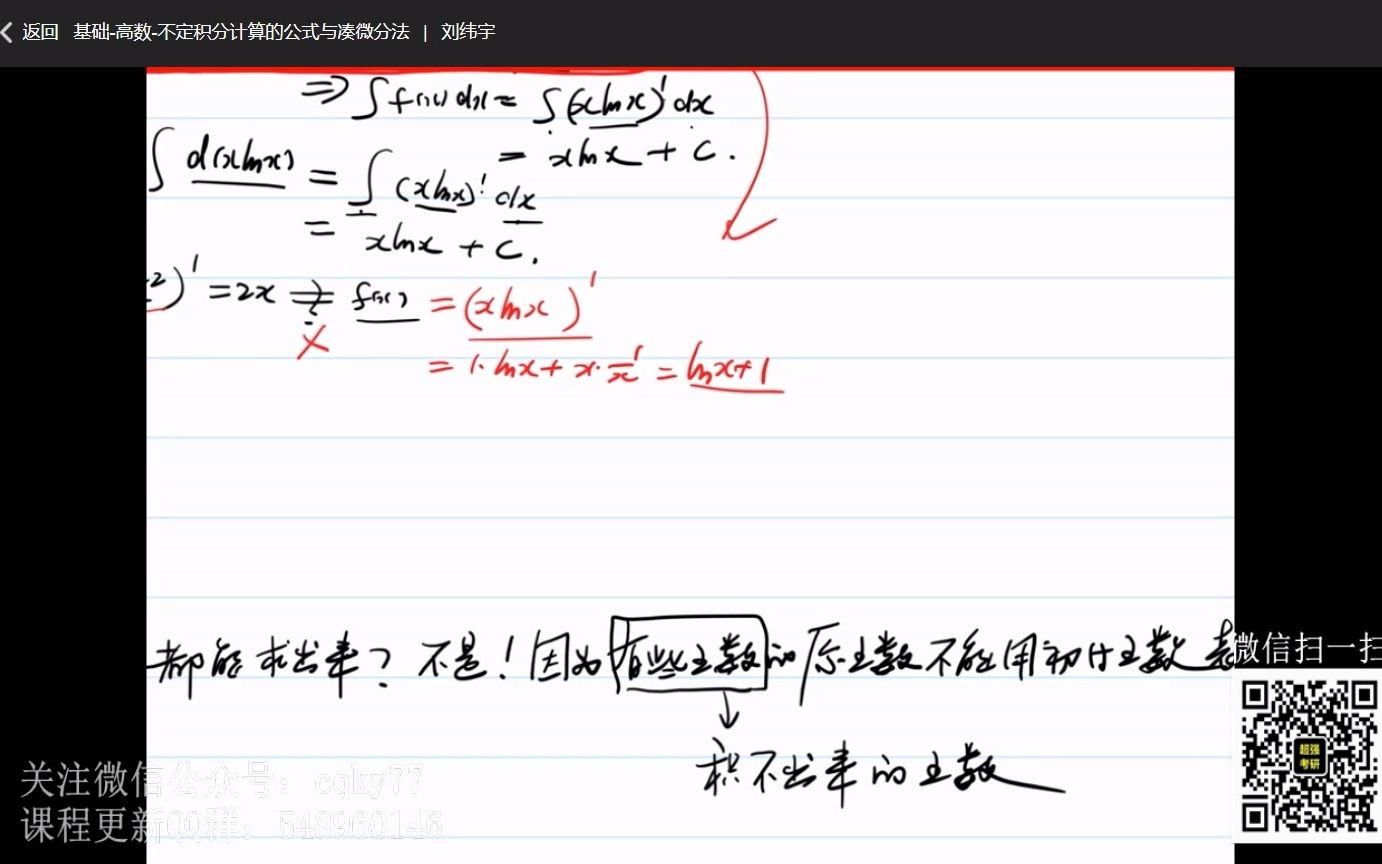 返回 基础-高数-不定积分计算的公式与凑微分法 | 刘纬宇
⇒ ∫f(x)dx = ∫(xlnx)'dx
= xlnx + C.
∫d(xlnx) = ∫(xlnx)'dx
= xlnx + C.
²)' = 2x ⇒ f(x) = (xlnx)'
= 1·lnx + x·1/x = lnx+1
都能求出来? 不是! 因为有些函数的原函数不能用初什函数表
↓
积不出来的函数
微信扫一扫
超强
考研
关注微信公众号: cqky77
课程更新QQ群: 548960146